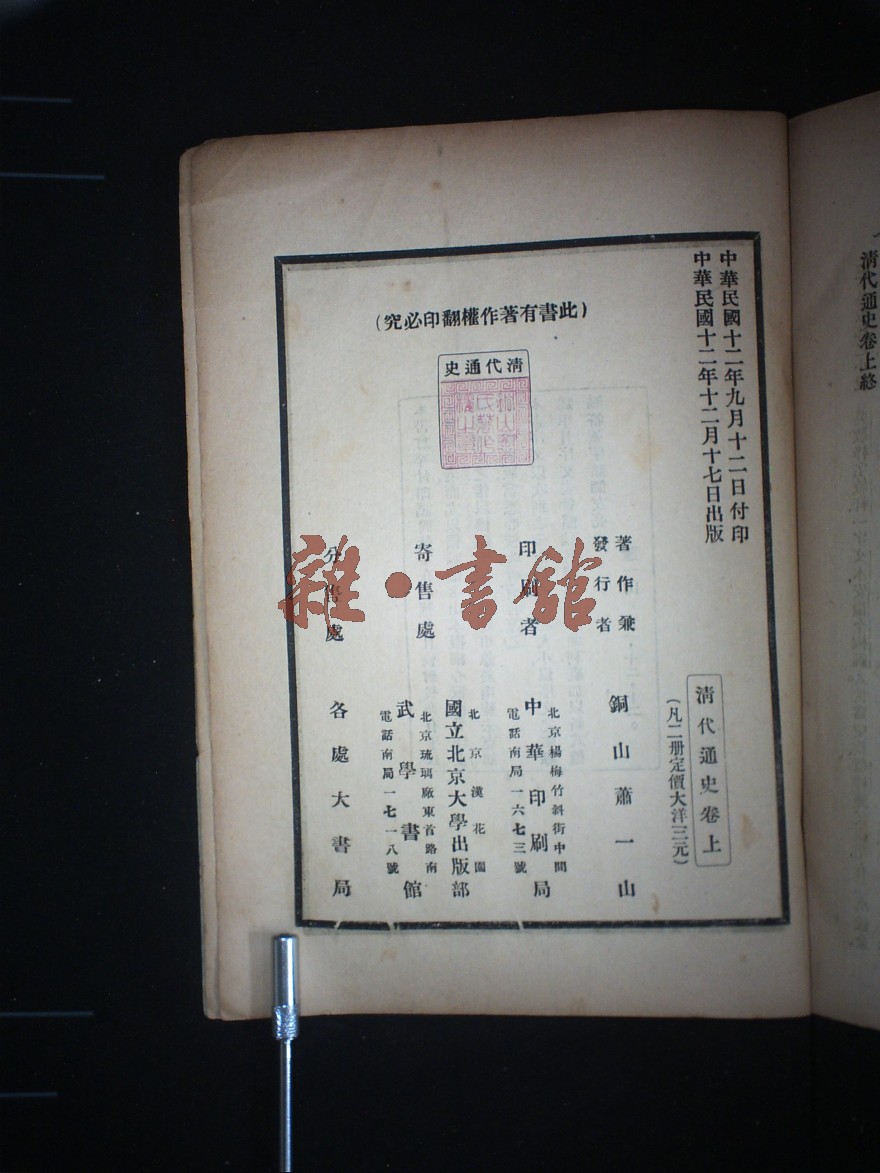 中華民國十二年九月十二日付印
中華民國十二年十二月十七日出版
清代通史卷上
(凡二册定價大洋三元)
(此書有著作權翻印必究)
清代通史
著作兼
發行者
銅山蕭一山
印刷者
北京楊梅竹斜街中間
中華印刷局
電話南局一六七三號
寄售處
北京漢花園
國立北京大學出版部
北京琉璃廠東首路南
武學書館
電話南局一七一八號
分售處
各處大書局
雜·書館
清代通史卷上終